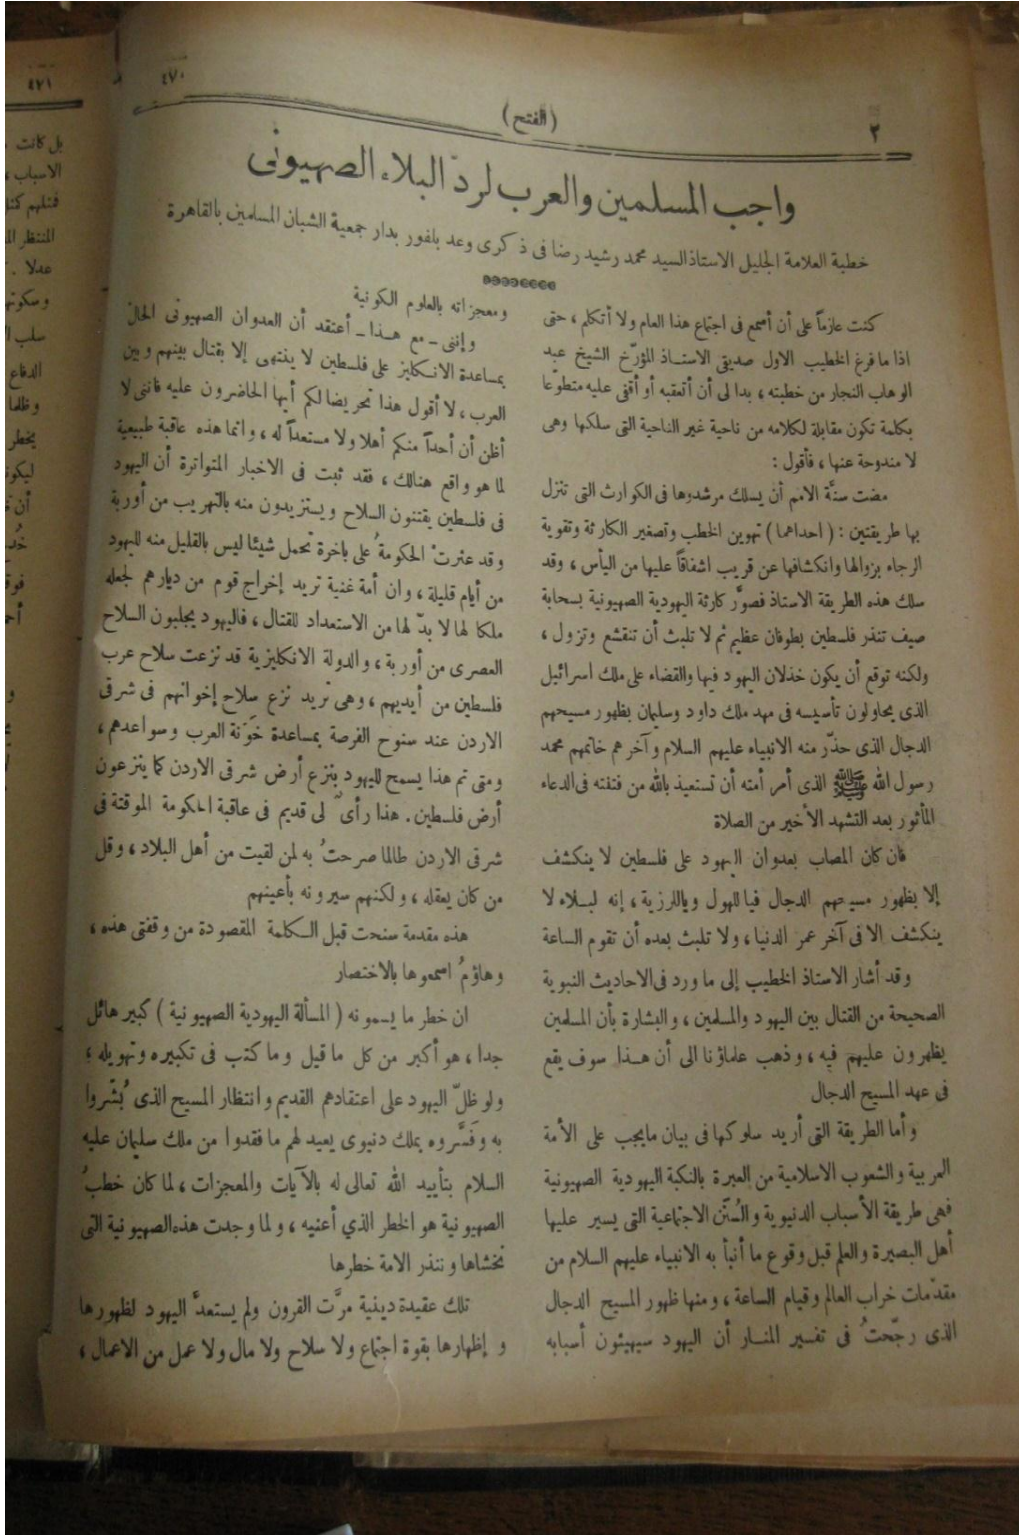 ٤٧٠
(الفتح)
٢
واجب المسلمين والعرب لرد البلاء الصهيونى
خطبة العلامة الجليل الاستاذ السيد محمد رشيد رضا فى ذكرى وعد بلفور بدار جمعية الشبان المسلمين بالقاهرة
كنت عازماً على أن أسمع فى اجتماع هذا العام ولا أتكلم ، حتى
اذا ما فرغ الخطيب الاول صديقى الاستاذ المؤرّخ الشيخ عبد
الوهاب النجار من خطبته ، بدا لى أن أتعقبه أو أقفى عليه متطوّعا
بكلمة تكون مقابلة لكلامه من ناحية غير الناحية التى سلكها وهى
لا مندوحة عنها ، فأقول :
مضت سنَّة الامم أن يسلك مرشدوها فى الكوارث التى تنزل
بها طريقتين : ( احداهما ) تهوين الخطب وتصغير الكارثة وتقوية
الرجاء بزوالها وانكشافها عن قريب اشفاقاً عليها من اليأس ، وقد
سلك هذه الطريقة الاستاذ فصوَّر كارثة اليهودية الصهيونية بسحابة
صيف تنذر فلسطين بطوفان عظيم ثم لا تلبث أن تنقشع وتزول ،
ولكنه توقع أن يكون خذلان اليهود فيها والقضاء على ملك اسرائيل
الذى يحاولون تأسيسه فى مهد ملك داود وسليمان بظهور مسيحهم
الدجال الذى حذّر منه الانبياء عليهم السلام وآخرهم خاتمهم محمد
رسول الله ﷺ الذى أمر أمته أن تستعيذ بالله من فتنته فى الدعاء
المأثور بعد التشهد الأخير من الصلاة
فان كان المصاب بعدوان اليهود على فلسطين لا ينكشف
إلا بظهور مسيحهم الدجال فيا للهول ويا للرزية ، إنه لبلاء لا
ينكشف الا فى آخر عمر الدنيا ، ولا تلبث بعده أن تقوم الساعة
وقد أشار الاستاذ الخطيب إلى ما ورد فى الاحاديث النبوية
الصحيحة من القتال بين اليهود والمسلمين ، والبشارة بأن المسلمين
يظهرون عليهم فيه ، وذهب علماؤنا الى أن هذا سوف يقع
فى عهد المسيح الدجال
وأما الطريقة التى أريد سلوكها فى بيان ما يجب على الأمة
العربية والشعوب الاسلامية من العبرة بالنكبة اليهودية الصهيونية
فهى طريقة الأسباب الدنيوية والسُنَن الاجتماعية التى يسير عليها
أهل البصيرة والعلم قبل وقوع ما أنبأ به الانبياء عليهم السلام من
مقدّمات خراب العالم وقيام الساعة ، ومنها ظهور المسيح الدجال
الذى رجّحتُ فى تفسير المنار أن اليهود سيهيئون أسبابه
ومعجزاته بالعلوم الكونية
وإننى ـ مع هذا ـ أعتقد أن العدوان الصهيونى الحالّ
بمساعدة الانكليز على فلسطين لا ينتهى إلا بقتال بينهم وبين
العرب ، لا أقول هذا تحريضا لكم أيها الحاضرون عليه فاننى لا
أظن أن أحداً منكم أهلا ولا مستعداً له ، وانما هذه عاقبة طبيعية
لما هو واقع هنالك ، فقد ثبت فى الاخبار المتواترة أن اليهود
فى فلسطين يقتنون السلاح ويستزيدون منه بالتهريب من أوربة
وقد عثرتْ الحكومةُ على باخرة تحمل شيئا ليس بالقليل منه لليهود
من أيام قليلة ، وان أمة غنية تريد إخراج قوم من ديارهم لجعله
ملكا لها لا بدّ لها من الاستعداد للقتال ، فاليهود يجلبون السلاح
العصرى من أوربة ، والدولة الانكليزية قد نزعت سلاح عرب
فلسطين من أيديهم ، وهى تريد نزع سلاح إخوانهم فى شرقى
الاردن عند سنوح الفرصة بمساعدة خَوَنة العرب وسواعدهم ،
ومتى تم هذا يسمح لليهود بنزع أرض شرقى الاردن كما ينزعون
أرض فلسطين . هذا رأىٌ لى قديم فى عاقبة الحكومة الموقتة فى
شرقى الاردن طالما صرحتُ به لمن لقيت من أهل البلاد ، وقل
من كان يعقله ، ولكنهم سيرونه بأعينهم
هذه مقدمة سنحت قبل الكلمة المقصودة من وقفتى هذه ،
وهاؤمُ اسمعوها بالاختصار
ان خطر ما يسمونه ( المسألة اليهودية الصهيونية ) كبير هائل
جدا ، هو أكبر من كل ما قيل وما كتب فى تكبيره وتهويله ،
ولو ظلّ اليهود على اعتقادهم القديم وانتظار المسيح الذى بُشّروا
به وفَسَّروه بملك دنيوى يعيد لهم ما فقدوا من ملك سليمان عليه
السلام بتأييد الله تعالى له بالآيات والمعجزات ، لما كان خطبُ
الصهيونية هو الخطر الذي أعنيه ، ولما وجدت هذه الصهيونية التى
نخشاها وننذر الامة خطرها
تلك عقيدة دينية مرَّت القرون ولم يستعدَّ اليهود لظهورها
و إظهارها بقوة اجتماع ولا سلاح ولا مال ولا عمل من الاعمال ،
٤٧١
بل كانت
الاسباب ،
عدلا .
سلب
الدفاع
يخطر